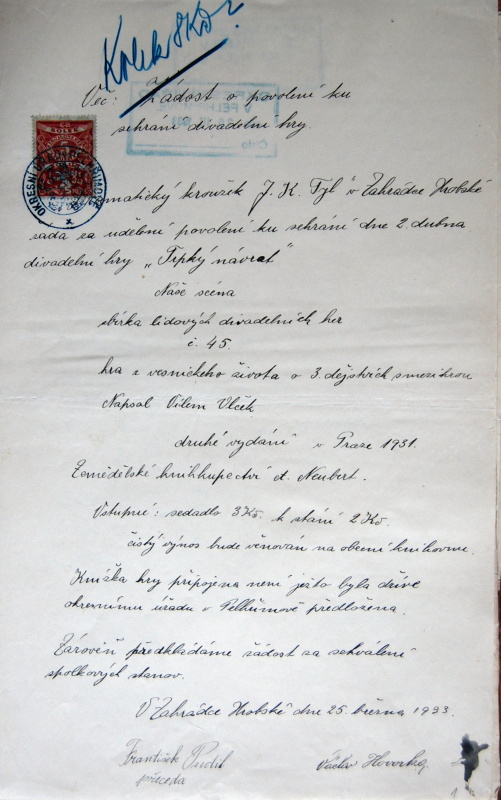 Kolek 8Kč?
Věc: Žádost o povolení ku
sehrání divadelní hry.
KOLEK
OKRESNÍ
Číslo
Dramatický kroužek J. K. Tyl v Zahrádce Hrobské
žádá za udělení povolení ku sehrání dne 2. dubna
divadelní hry „Trpký návrat"
Naše scéna
sbírka lidových divadelních her
č. 45.
hra z vesnického života o 3. dějstvích s mezihrou
Napsal Vilém Vlček
druhé vydání v Praze 1931.
Zemědělské knihkupectví A. Neubert.
Vstupné: sedadlo 3 Kč. k stání 2 Kč.
čistý výnos bude věnován na obecní knihovnu.
Knížka hry připojena není ježto byla dříve
okresnímu úřadu v Pelhřimově předložena.
Zároveň předkládáme žádost za schválení
spolkových stanov.
V Zahrádce Hrobské dne 25. března 1933.
František Pudil Václav Hovorka
předseda